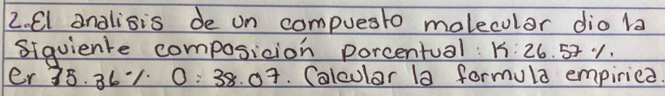 2..El analisis de un compuesto molecular dio la
siguiente composición porcentual: K: 26.57 %.
Cr 35.36 %. O: 38.07. Calcular la formula empirica.